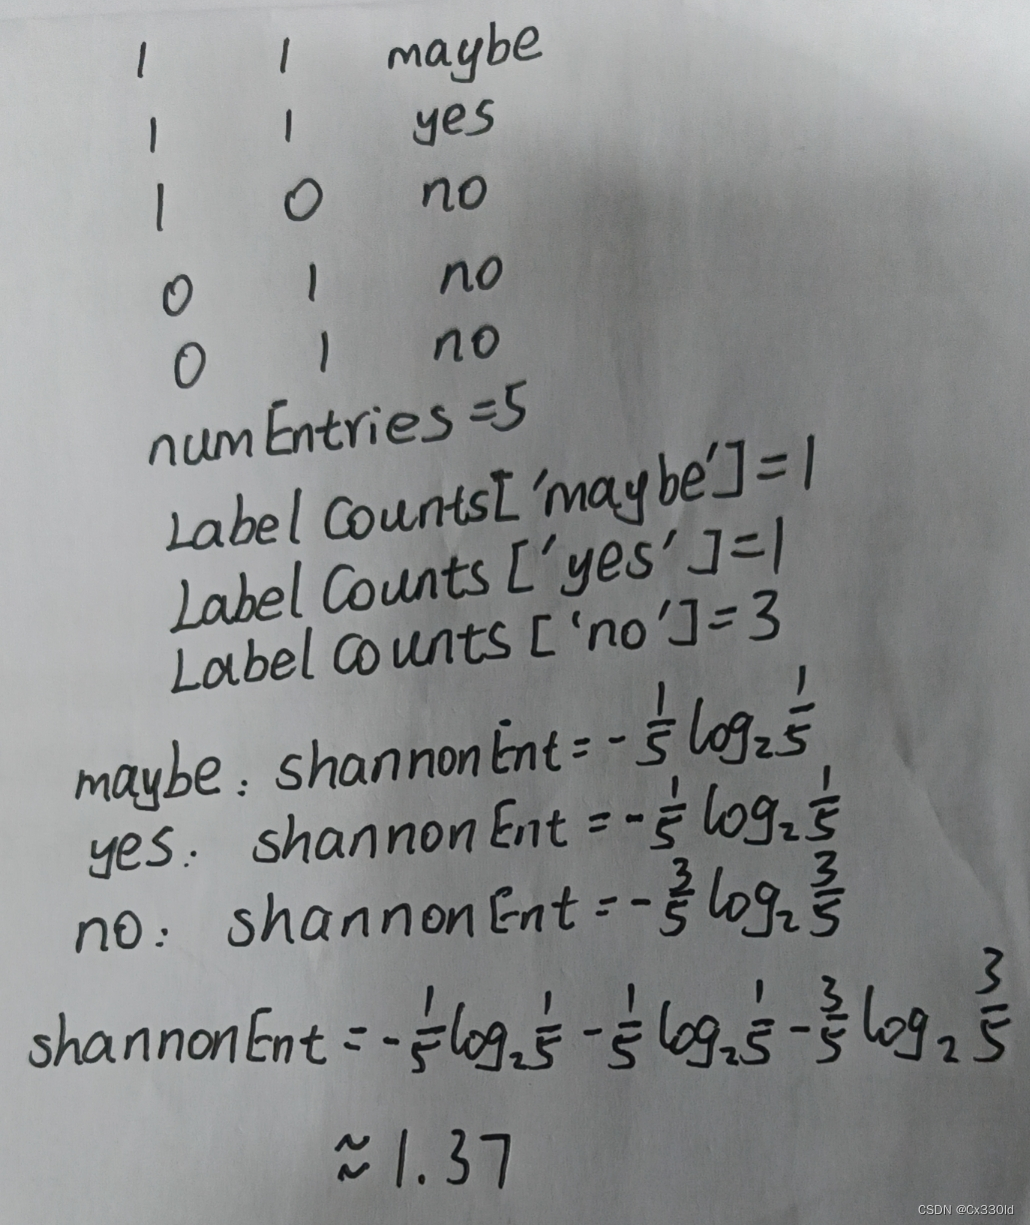 1 1 maybe
1 1 yes
1 0 no
0 1 no
0 1 no
numEntries=5
Label Counts['maybe']=1
Label Counts['yes']=1
Label Counts['no']=3
maybe: shannonEnt=-1/5 log₂ 1/5
yes: shannonEnt=-1/5 log₂ 1/5
no: shannonEnt=-3/5 log₂ 3/5
shannonEnt=-1/5 log₂ 1/5 -1/5 log₂ 1/5 -3/5 log₂ 3/5
≈1.37
CSDN @Cx330ld